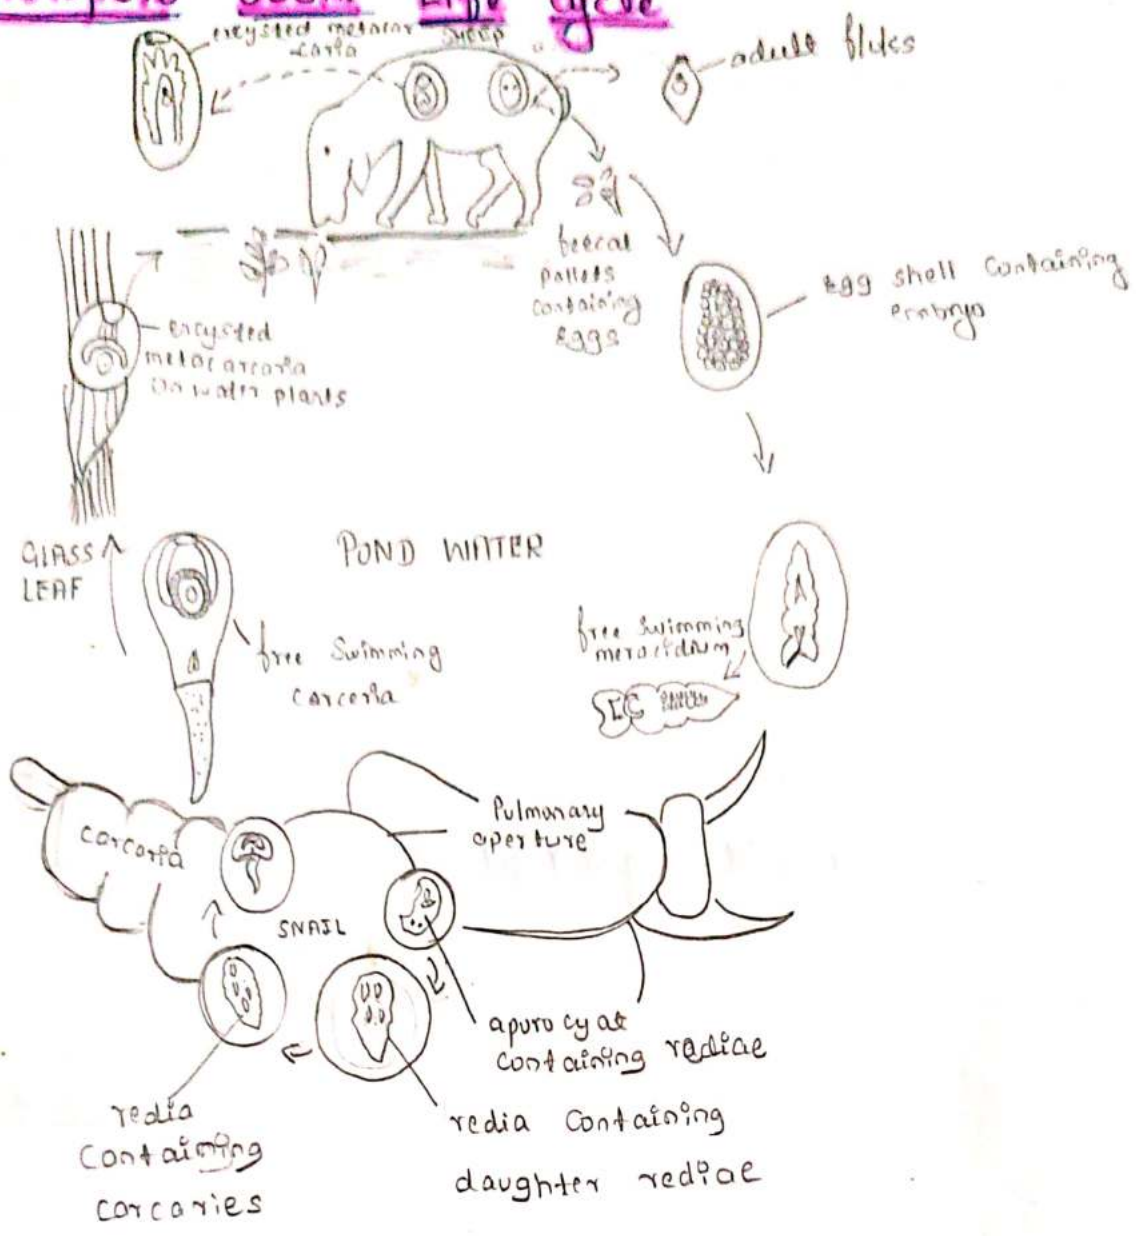 Life Cycle
encysted metacer
-caria
Sheep
adult flukes
feecal
pallets
containing
Eggs
Egg shell Containing
embryo
encysted
metacarcaria
On water plants
GLASS
LEAF
POND WATER
free Swimming
carceria
free swimming
meracidium
Pulmanary
aperture
carcaria
SNAIL
apurocyat
containing rediae
redia
Containing
carcaries
redia Containing
daughter rediae